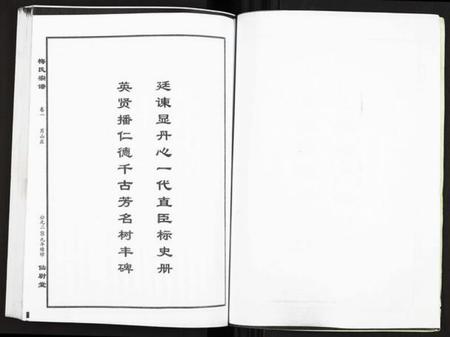 廷谏显丹心一代直臣标史册
英贤播仁德千古芳名树丰碑
梅氏宗谱
卷一
仙尉堂